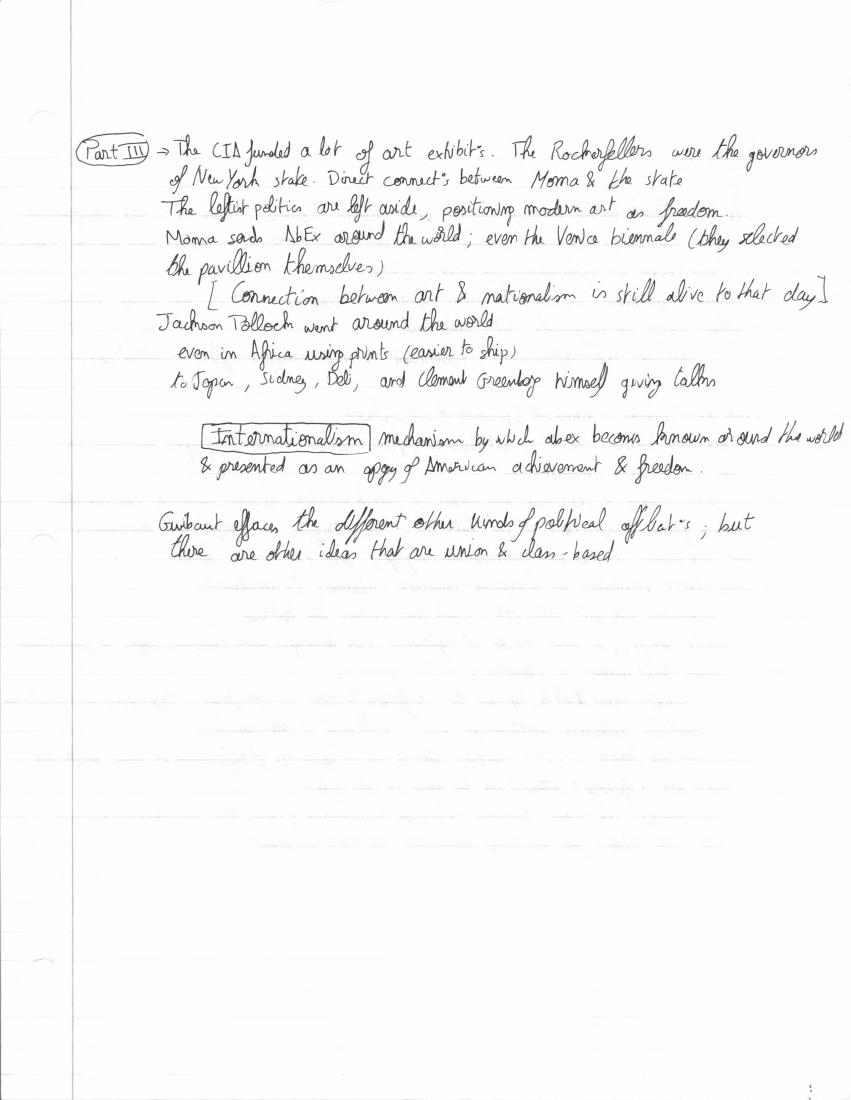 Part III → The CIA funded a lot of art exhibit°s. The Rockerfellers were the governors
of New York state. Direct connect°s between Moma & the state
The leftist politics are left aside, positioning modern art as freedom.
Moma sends AbEx around the world; even the Venice biennale (they selected
the pavillion themselves)
[Connection between art & nationalism is still alive to that day]
Jackson Pollock went around the world
even in Africa using prints (easier to ship)
to Japan, Sidney, Deli, and Clement Greenberg himself giving talks
Internationalism mechanism by which abex becomes known around the world
& presented as an apogy of American achievement & freedom.
Guilbaut effaces the different other kinds of political affiliat°s; but
there are other ideas that are union & class-based